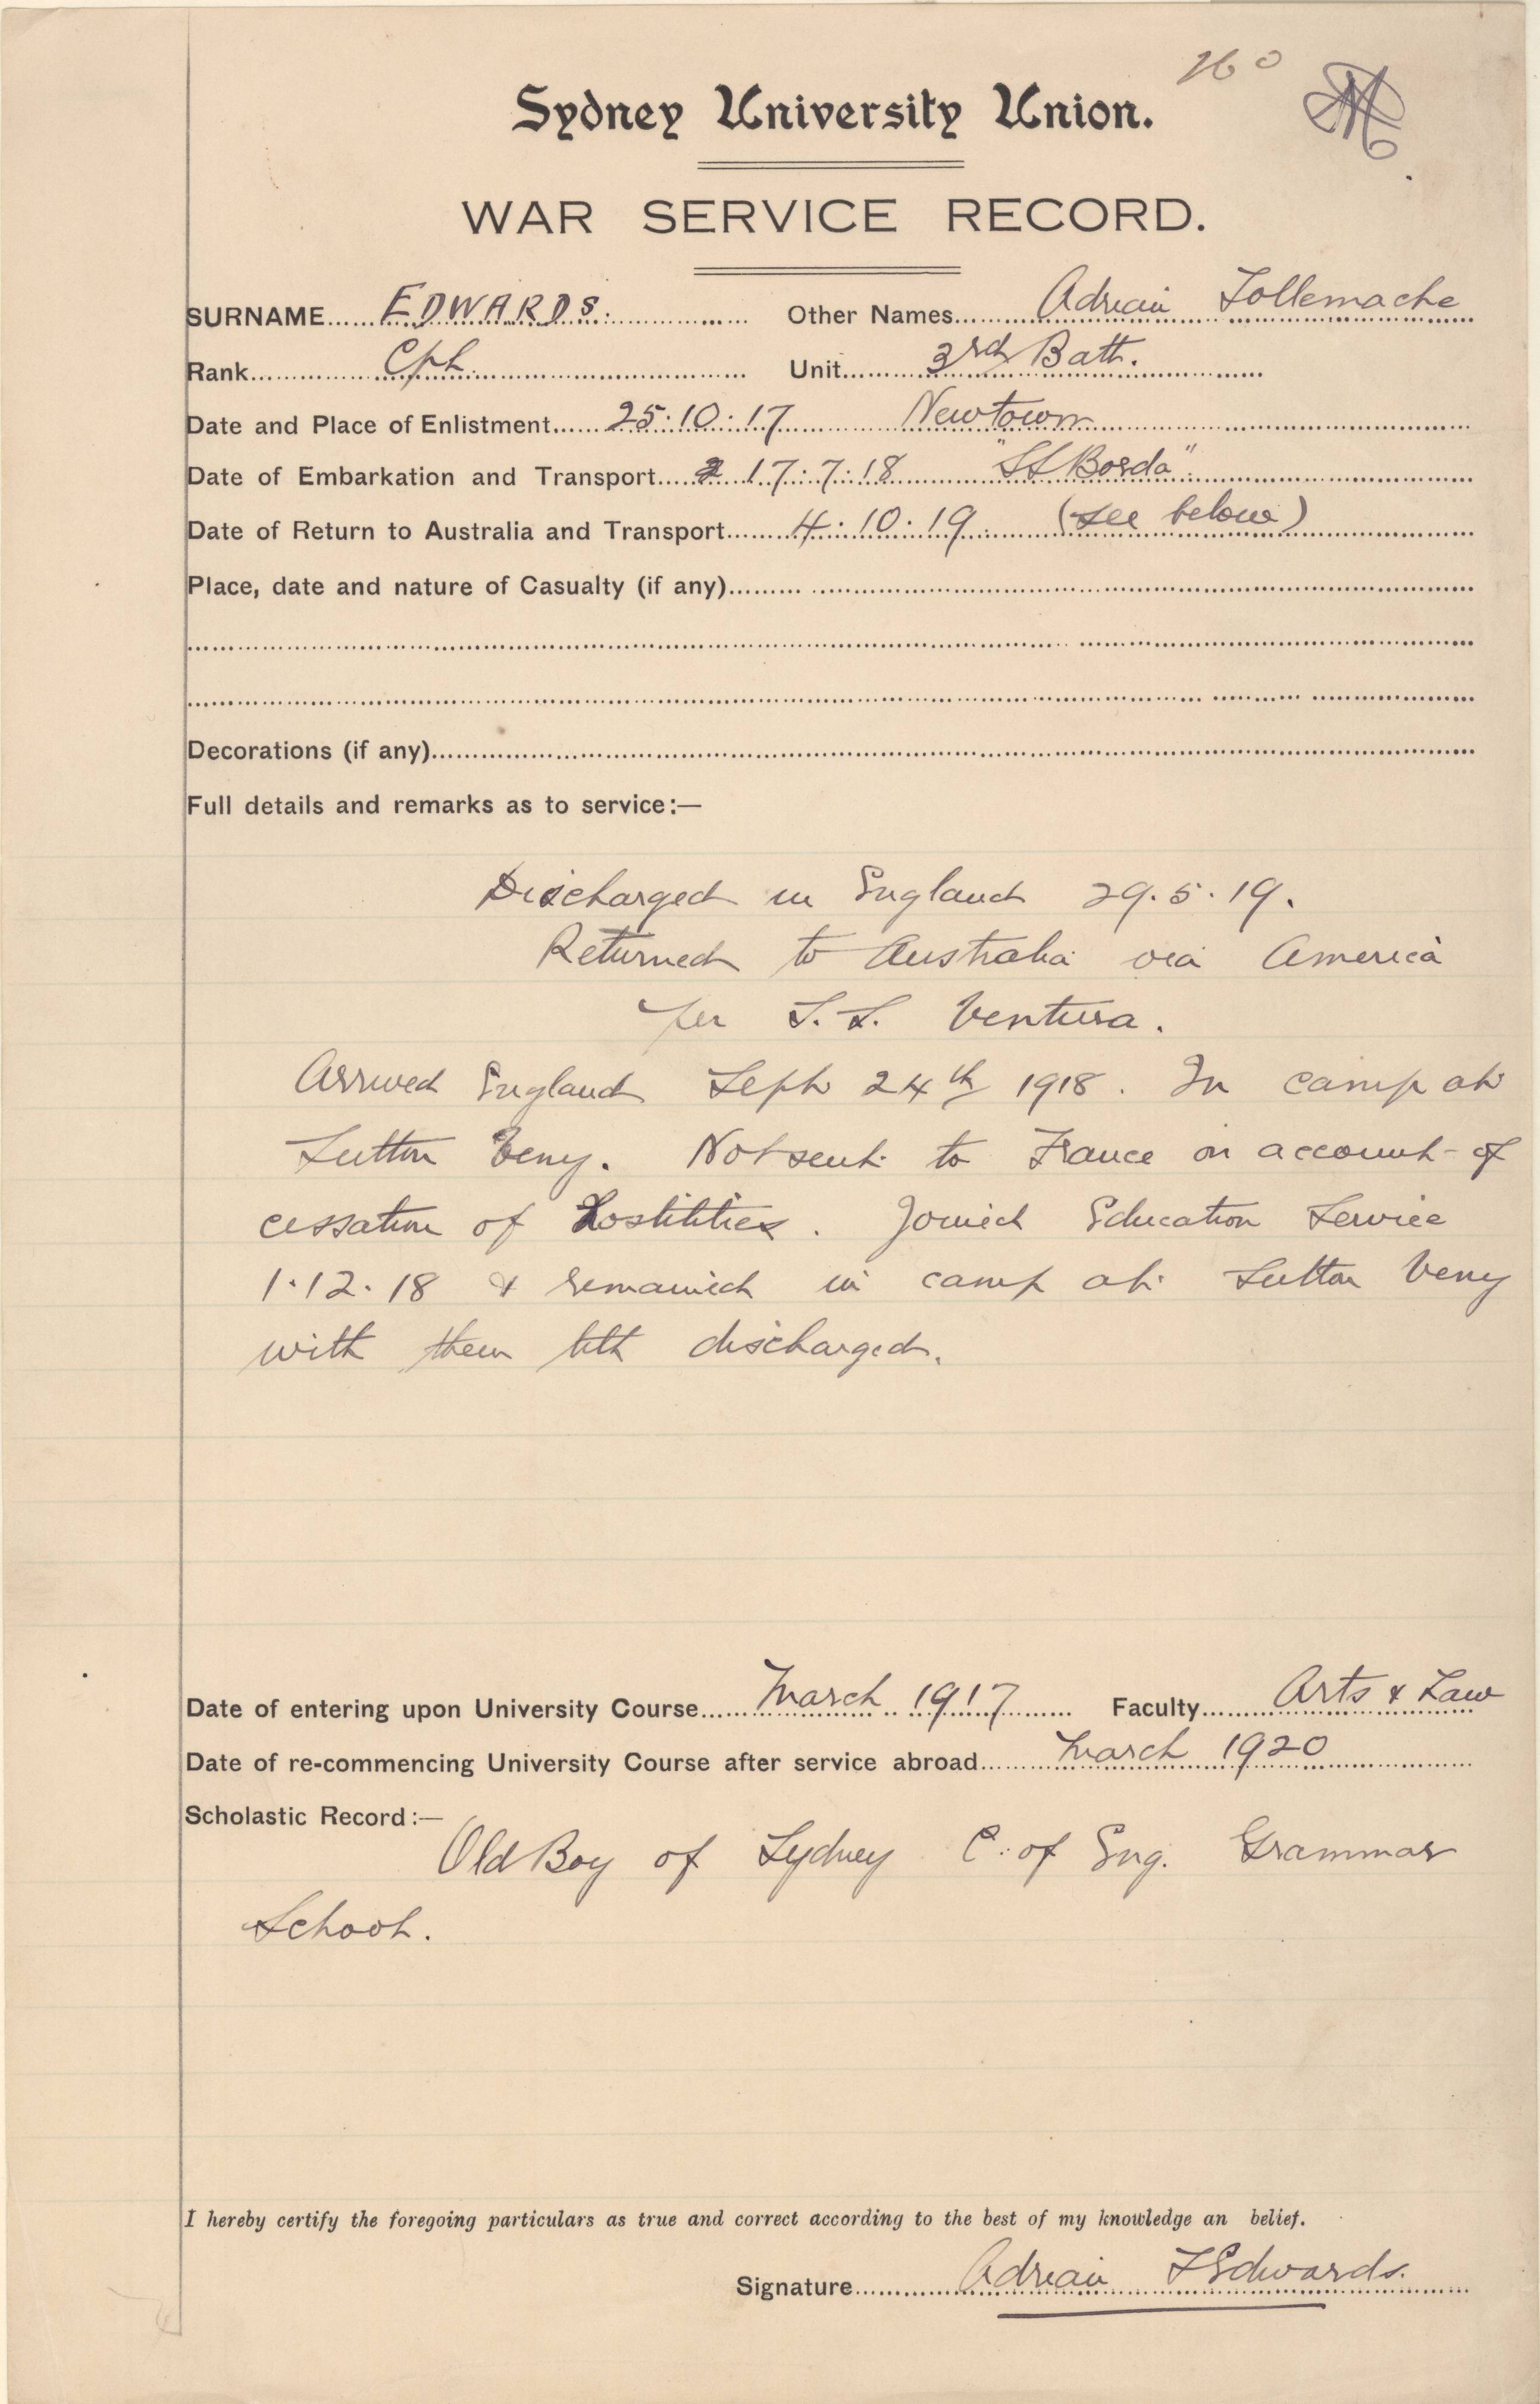 260
Sydney University Union.
WAR SERVICE RECORD.
SURNAME EDWARDS. Other Names Adrian Tollemache
Rank Cpl. Unit 3rd Batt.
Date and Place of Enlistment 25:10:17 Newtown
Date of Embarkation and Transport 17:7:18 "SS Borda".
Date of Return to Australia and Transport 4:10:19. (see below)
Place, date and nature of Casualty (if any)
Decorations (if any)
Full details and remarks as to service:—
Discharged in England 29.5.19.
Returned to Australia via America
per S.S. Ventura.
Arrived England Sept 24th 1918. In camp at
Sutton Veny. Not sent to France on account of
cessation of Hostilities. Joined Education Service
1.12.18 & remained in camp at Sutton Veny
with them till discharged.
Date of entering upon University Course March 1917 Faculty Arts & Law
Date of re-commencing University Course after service abroad March 1920
Scholastic Record:—
Old Boy of Sydney C. of Eng. Grammar
School.
I hereby certify the foregoing particulars as true and correct according to the best of my knowledge an belief.
Signature Adrian T Edwards.